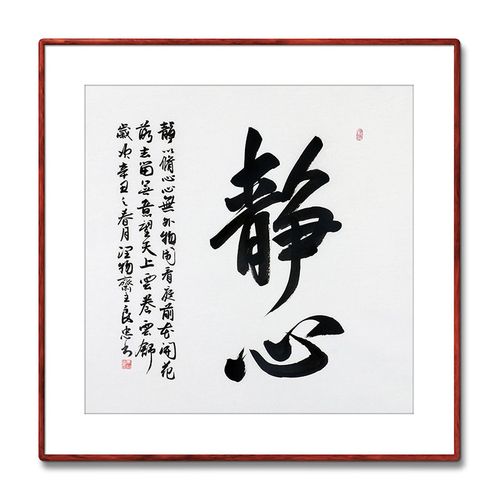 靜心
靜以脩心心無外物閑看庭前花開花
落去留無意望天上雲卷雲舒
歲次辛丑之春月潤物齋主良忠書